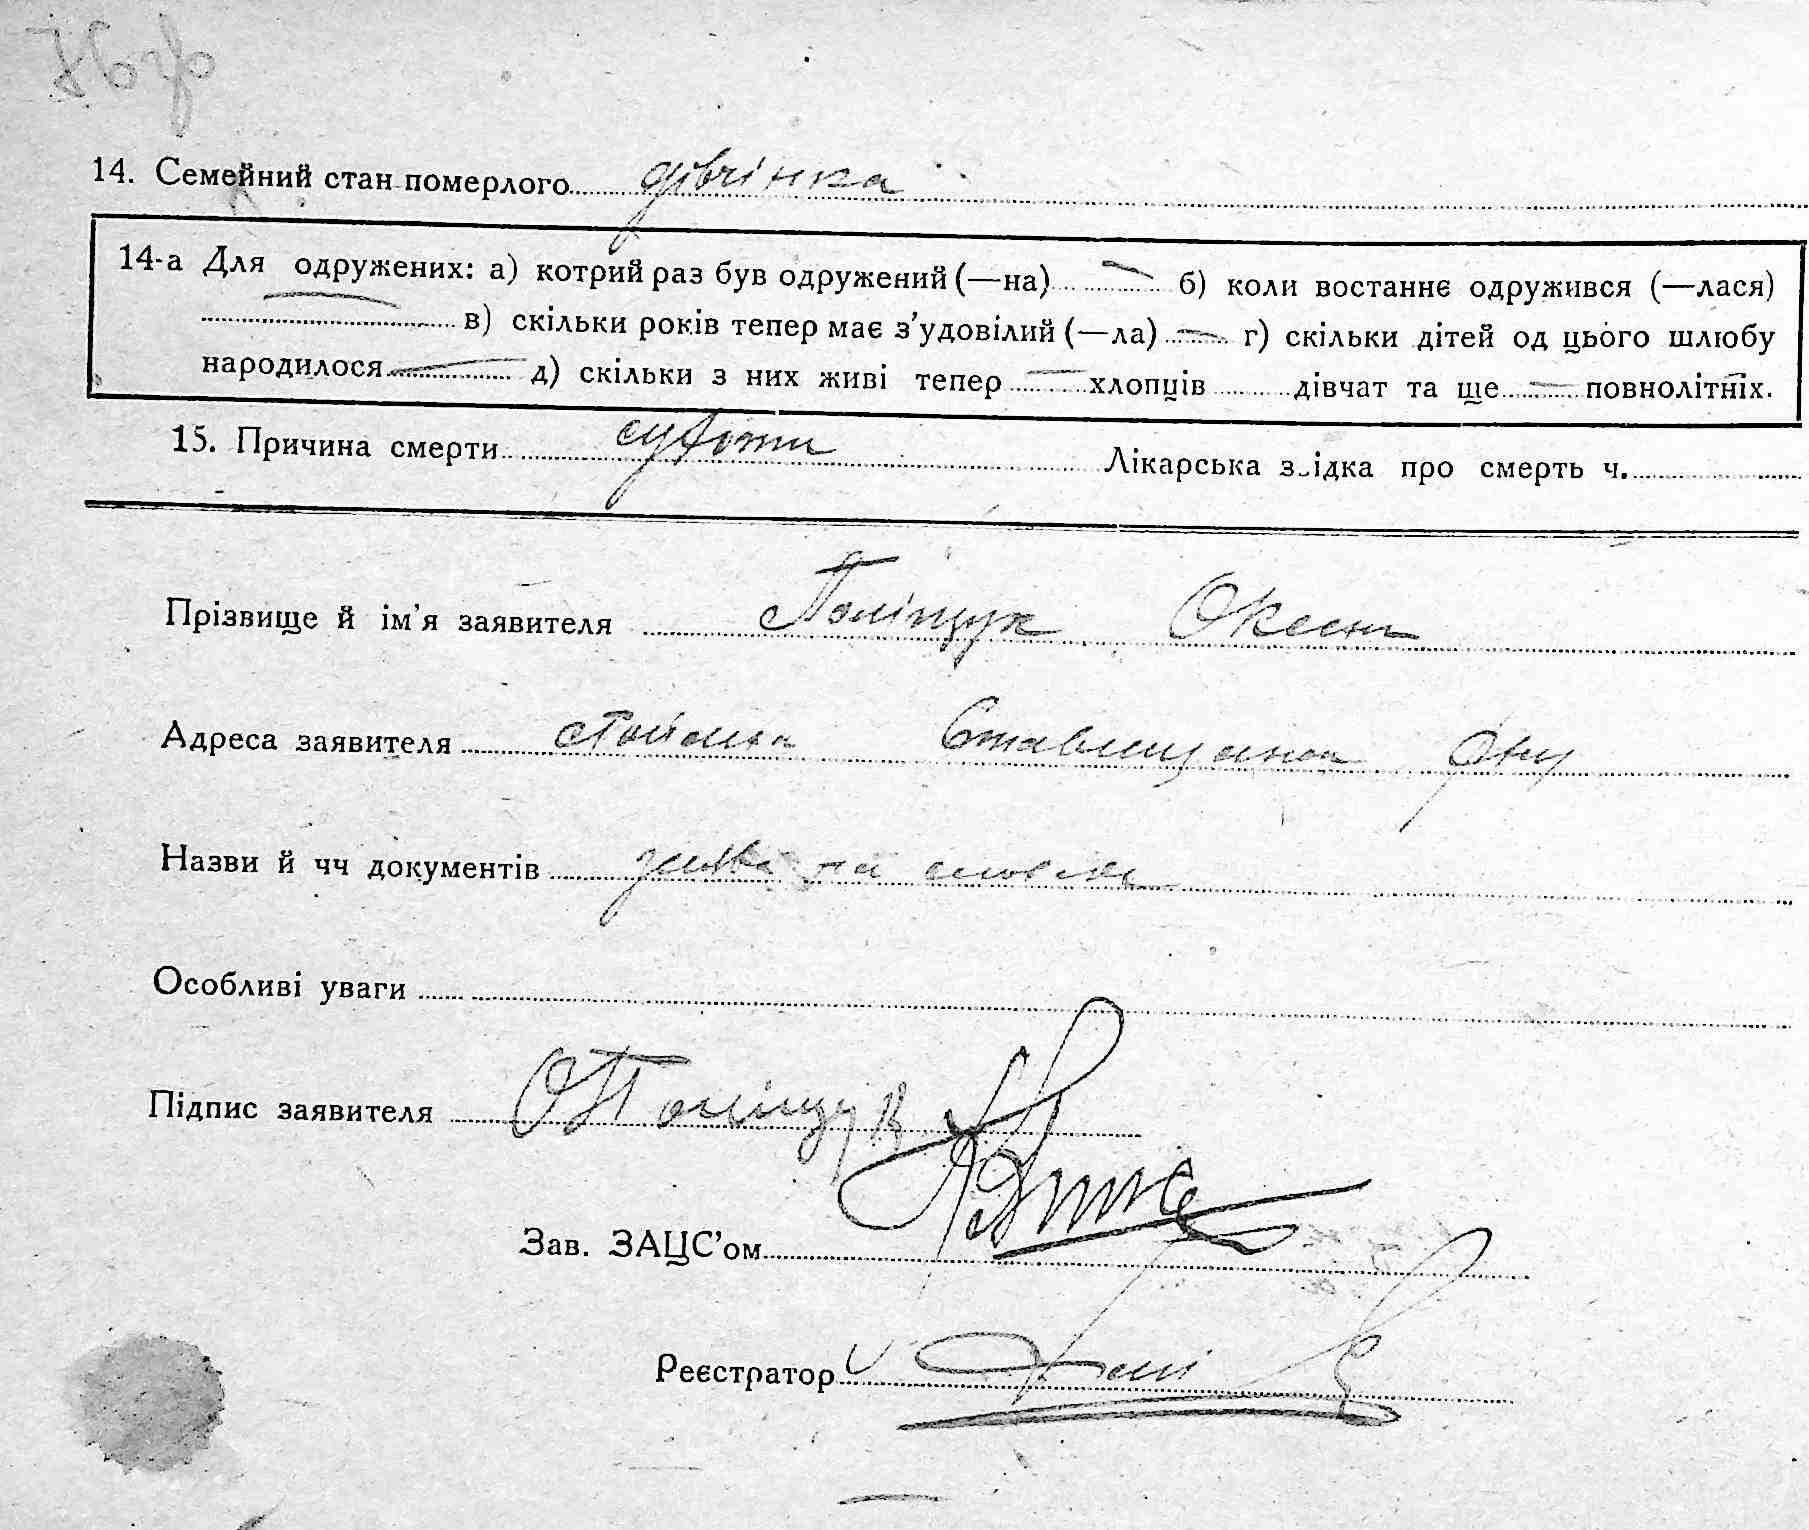 14. Семейний стан померлого дівчінка
14-а Для одружених: а) котрий раз був одружений (—на) — б) коли востаннє одружився (—лася)
— в) скільки років тепер має з'удовілий (—ла) — г) скільки дітей од цього шлюбу
народилося — д) скільки з них живі тепер — хлопців дівчат та ще — повнолітніх.
15. Причина смерти сухоти Лікарська з ідка про смерть ч.
Прізвище й ім'я заявителя Поліщук
Адреса заявителя Ставищанск рну
Назви й чч документів заява на словах
Особливі уваги
Підпис заявителя О Поліщук
Зав. ЗАЦС'ом
Реєстратор